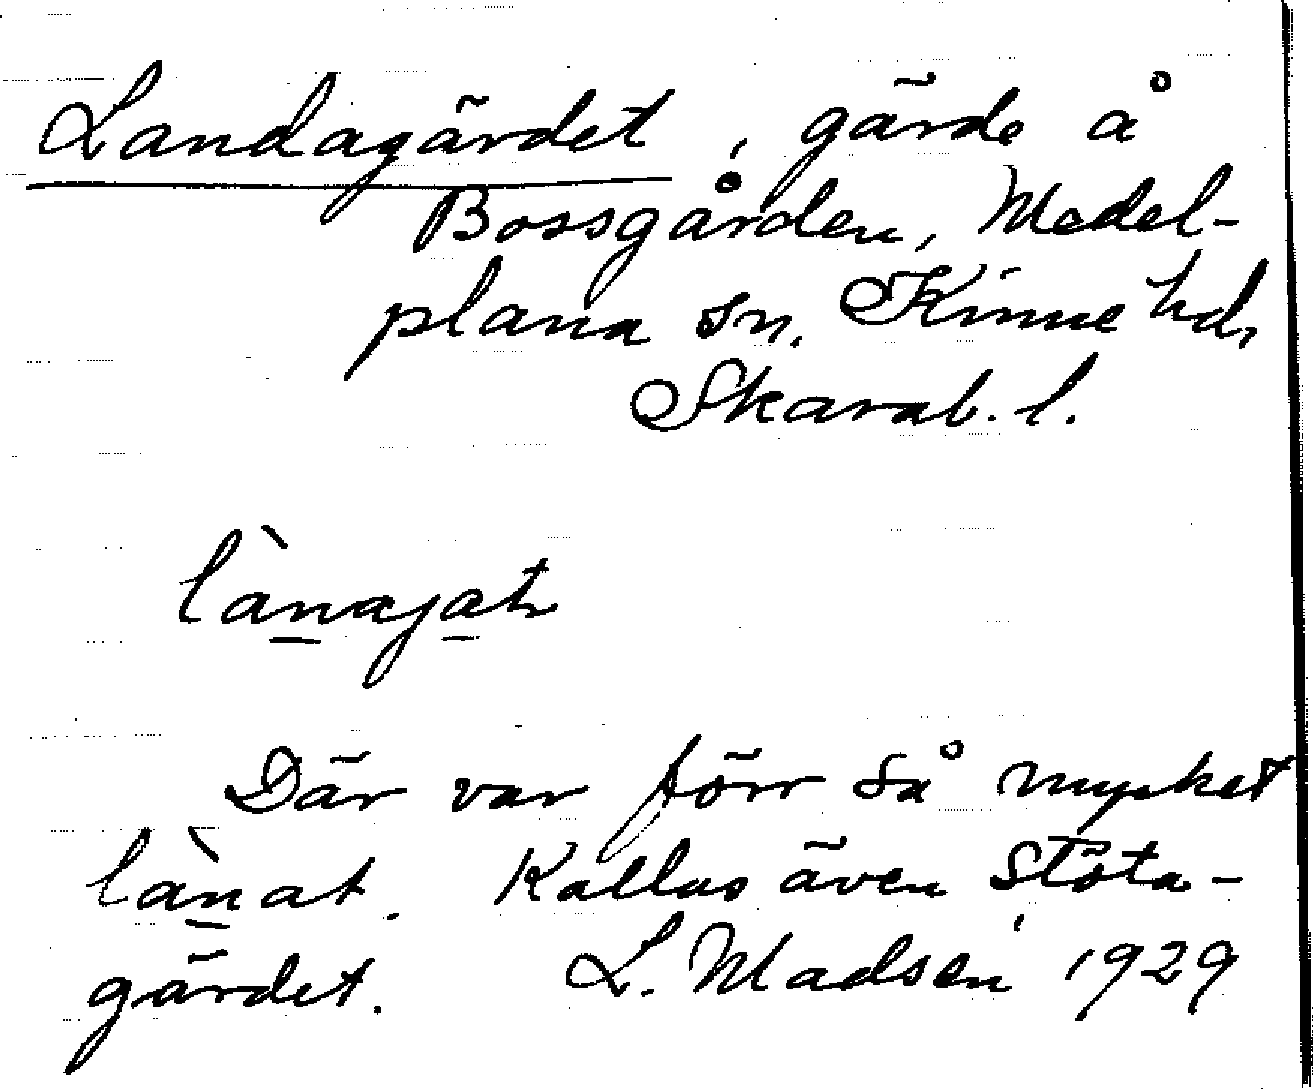 Landagärdet, gärde å
Bossgården, Medel-
plana sn. Kinne hd,
Skarab. l.
lànajatr
Där var förr så mycket
lànat. Kallas även Stöta-
gärdet. L. Madsén 1929